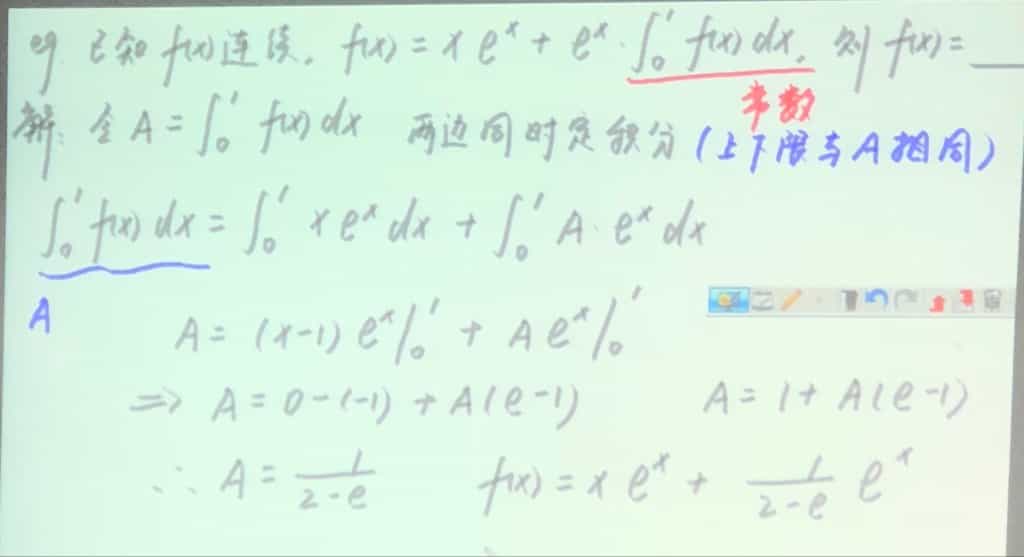 eg 已知 f(x)连续, f(x) = x e^x + e^x · ∫_0^1 f(x) dx, 则 f(x)= ____
常数
解: 令 A = ∫_0^1 f(x) dx 两边同时定积分 (上下限与A相同)
∫_0^1 f(x) dx = ∫_0^1 x e^x dx + ∫_0^1 A · e^x dx
A
A = (x-1) e^x |_0^1 + A e^x |_0^1
⇒ A = 0-(-1) + A(e-1) A = 1 + A(e-1)
∴ A = 1/(2-e) f(x) = x e^x + 1/(2-e) e^x